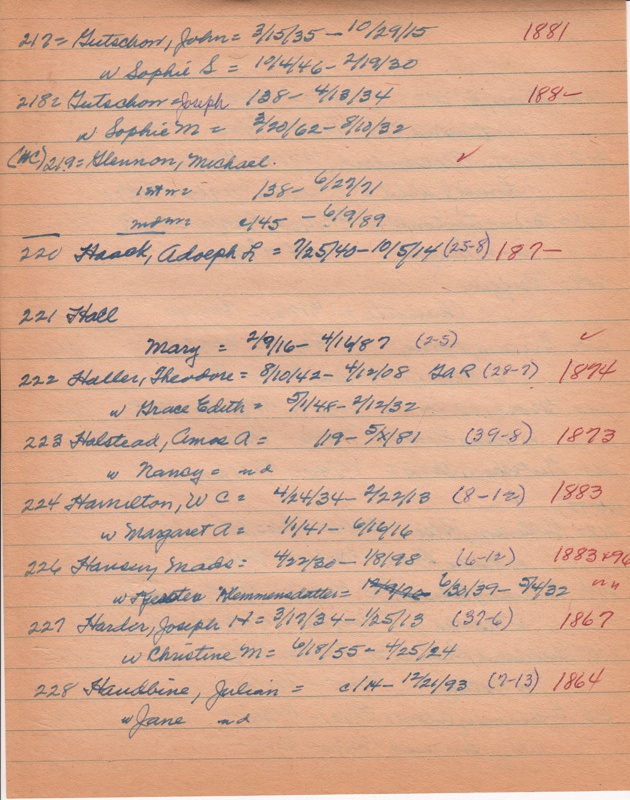 217 = Gutschow, John = 3/15/35 – 10/29/15 1881
w Sophie S = 10/4/46 – 2/19/30
218 = Gutschow = Joseph 138 – 4/13/34 188–
w Sophie M = 3/20/62 – 8/10/32
(MC) 219 = Glennon, Michael. ✓
1st w = 138 – 6/27/71
2nd w = c/45 – 6/9/89
220 Haack, Adolph L = 7/25/40 – 10/5/14 (25-8) 187–
221 Hall
Mary = 2/9/16 – 4/16/87 (2-5) ✓
222 Haller, Theodore = 8/10/42 – 4/12/08 GAR (28-7) 1874
w Grace Edith = 5/1/48 – 2/12/32
223 Halstead, Amos A = /19 – 5/x/81 (39-8) 1873
w Nancy = nd
224 Hamilton, W C = 4/24/34 – 2/22/13 (8-12) 1883
w Margaret A = 1/1/41 – 6/16/16
226 Hansen, Mads = 4/22/30 – 1/8/98 (6-12) 1883+96
w Klemmensdatter = 6/30/39 – 5/4/32 " "
227 Harder, Joseph H = 3/17/34 – 1/25/13 (37-6) 1867
w Christine M = 6/18/55 – 4/25/24
228 Haudbine, Julian = c/14 – 12/21/93 (7-13) 1864
w Jane nd